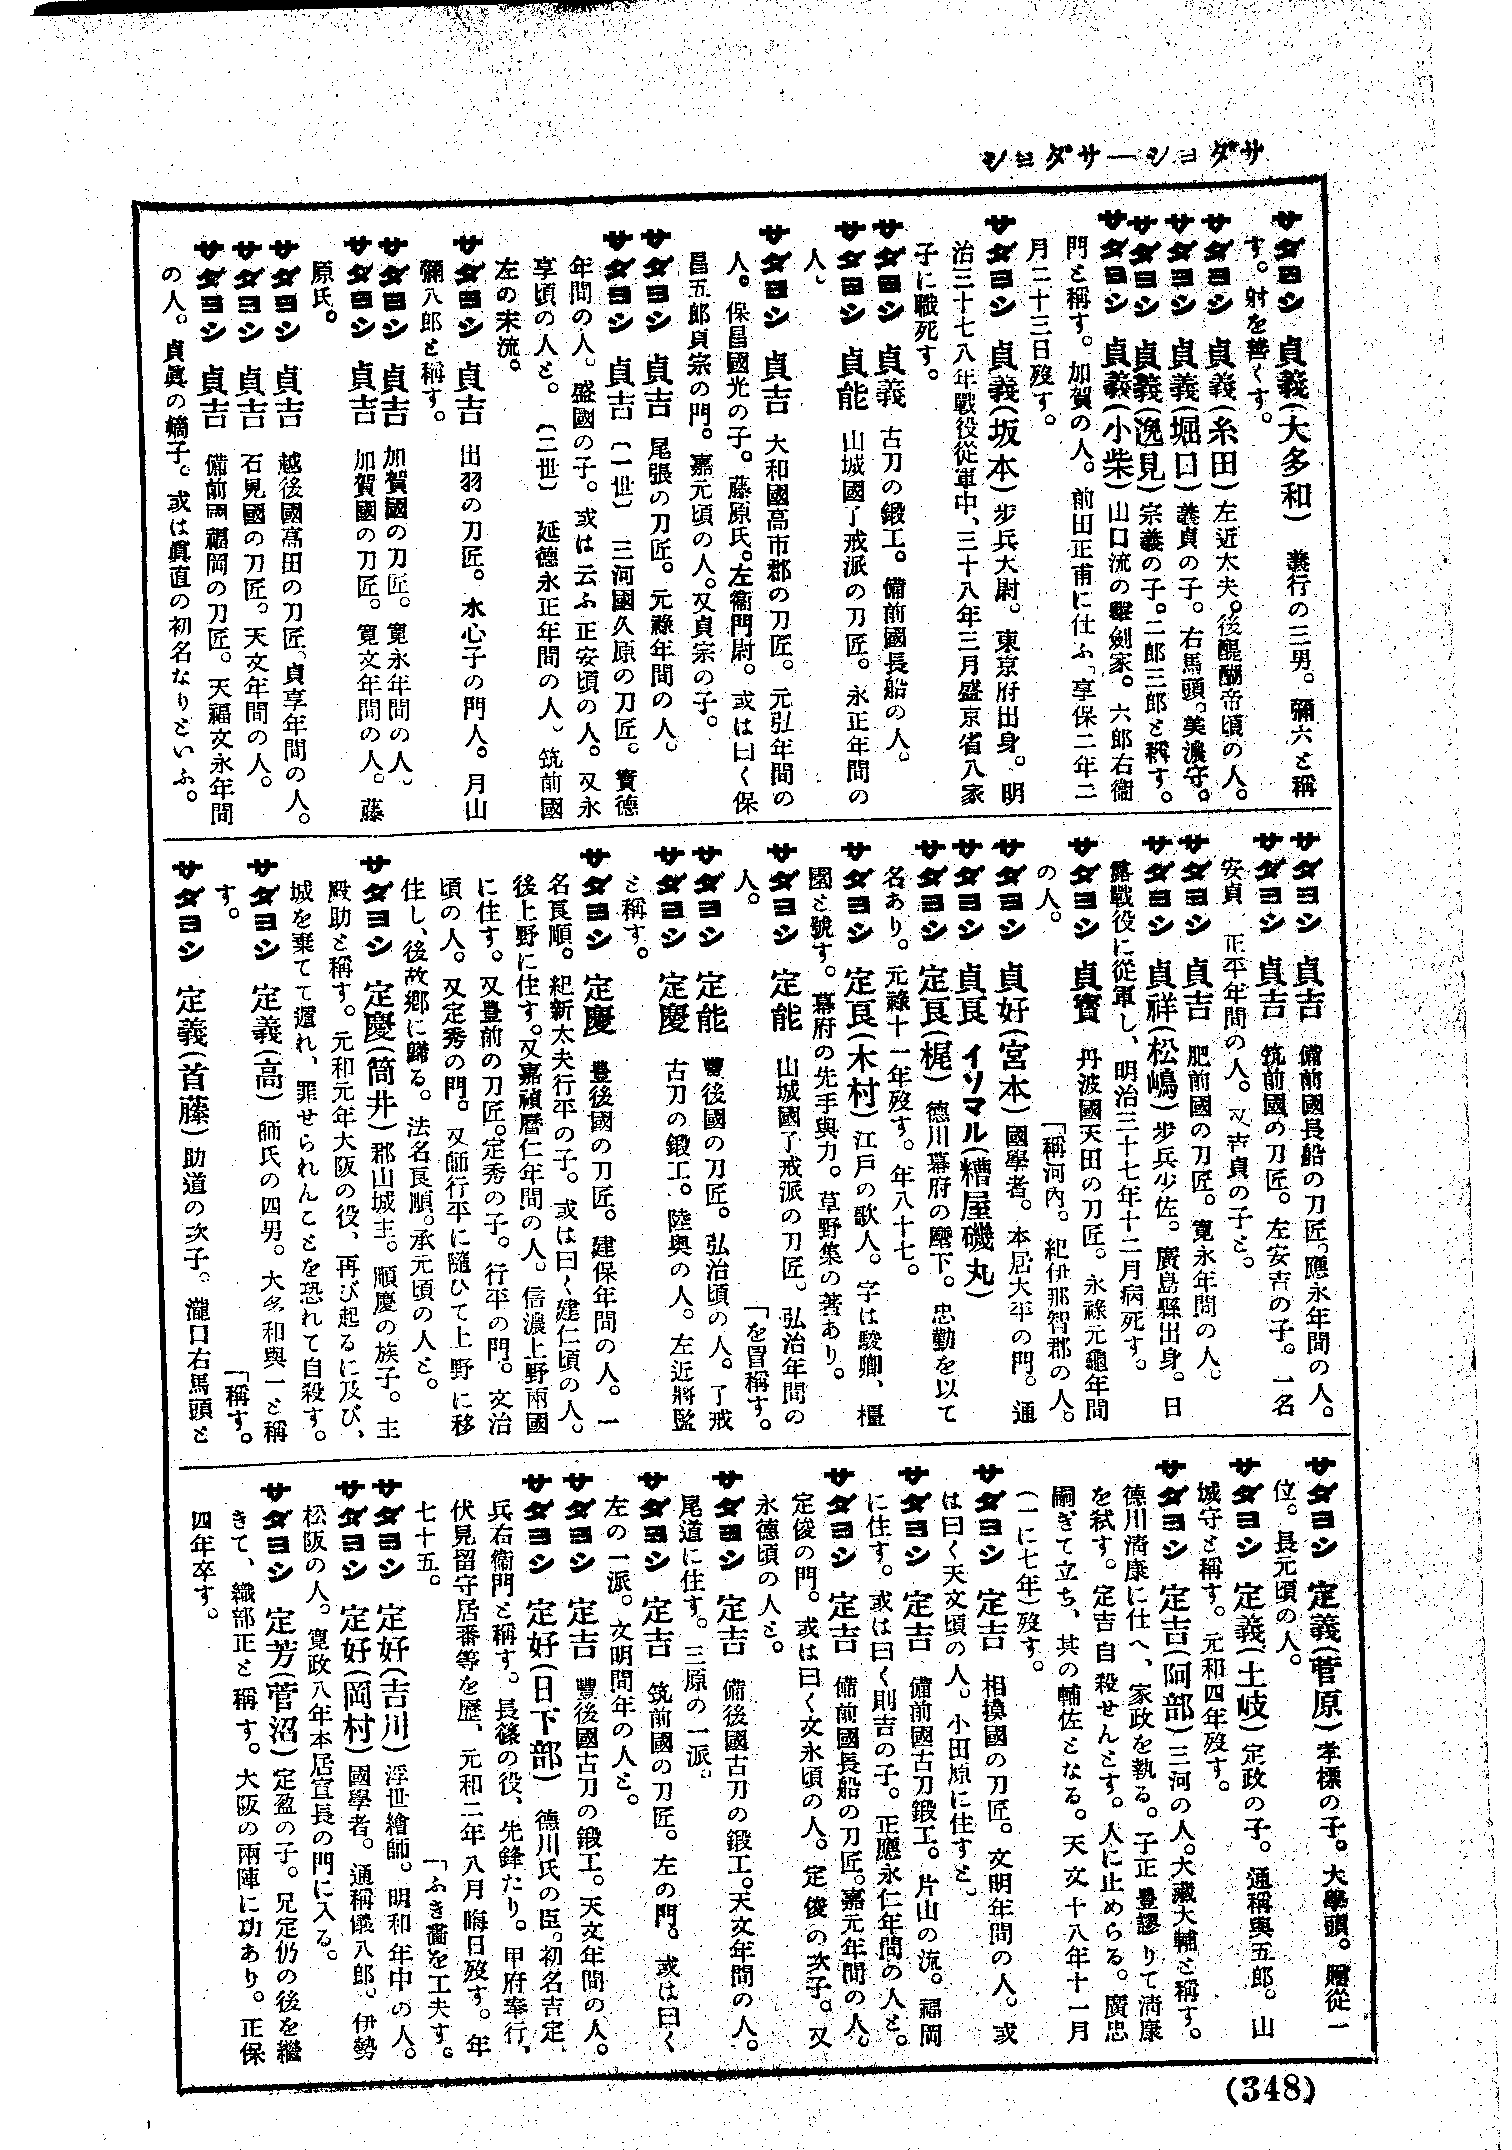 サダヨシ―サダヨシ
サダヨシ 貞義(大多和) 義行の三男。彌六と稱
す。射を善くす。
サダヨシ 貞義(糸田)左近大夫。後醍醐帝頃の人。
サダヨシ 貞義(堀口)義貞の子。右馬頭。美濃守。
サダヨシ 貞義(逸見)宗義の子。二郎三郎と稱す。
サダヨシ 貞義(小柴)山口流の擊劍家。六郎右衞
門と稱す。加賀の人。前田正甫に仕ふ、享保二年二
月二十三日歿す。
サダヨシ 貞義(坂本)步兵大尉。東京府出身。明
治三十七八年戰役從軍中、三十八年三月盛京省八家
子に戰死す。
サダヨシ 貞義 古刀の鍛工。備前國長船の人。
サダヨシ 貞能 山城國了戒派の刀匠。永正年間の
人。
サダヨシ 貞吉 大和國高市郡の刀匠。元弘年間の
人。保昌國光の子。藤原氏。左衞門尉。或は曰く保
昌五郎貞宗の門。嘉元頃の人。又貞宗の子。
サダヨシ 貞吉 尾張の刀匠。元祿年間の人。
サダヨシ 貞吉 〔一世〕 三河國久原の刀匠。寶德
年間の人。盛國の子。或は云ふ正安頃の人。又永
享頃の人と。 〔二世〕 延德永正年間の人。筑前國
左の末流。
サダヨシ 貞吉 出羽の刀匠。水心子の門人。月山
彌八郎と稱す。
サダヨシ 貞吉 加賀國の刀匠。寬永年間の人。
サダヨシ 貞吉 加賀國の刀匠。寬文年間の人。藤
原氏。
サダヨシ 貞吉 越後國高田の刀匠。貞享年間の人。
サダヨシ 貞吉 石見國の刀匠。天文年間の人。
サダヨシ 貞吉 備前國福岡の刀匠。天福文永年間
の人。貞眞の嫡子。或は眞直の初名なりといふ。
サダヨシ 貞吉 備前國長船の刀匠。應永年間の人。
サダヨシ 貞吉 筑前國の刀匠。左安吉の子。一名
安貞 正平年間の人。又吉貞の子と。
サダヨシ 貞吉 肥前國の刀匠。寬永年間の人。
サダヨシ 貞祥(松嶋)步兵少佐。廣島縣出身。日
露戰役に從軍し、明治三十七年十二月病死す。
サダヨシ 貞寶 丹波國天田の刀匠。永祿元龜年間
の人。 「稱河內。紀伊那智郡の人。
サダヨシ 貞好(宮本)國學者。本居大平の門。通
サダヨシ 貞良 イソマル(糟屋磯丸)
サダヨシ 定良(梶) 德川幕府の麾下。忠勤を以て
名あり。元祿十一年歿す。年八十七。
サダヨシ 定良(木村)江戶の歌人。字は駿卿、橿
園と號す。幕府の先手與力。草野集の著あり。
サダヨシ 定能 山城國了戒派の刀匠。弘治年間の
人。 「を冒稱す。
サダヨシ 定能 豐後國の刀匠。弘治頃の人。了戒
サダヨシ 定慶 古刀の鍛工。陸奧の人。左近將監
と稱す。
サダヨシ 定慶 豊後國の刀匠。建保年間の人。一
名良順。紀新太夫行平の子。或は曰く建仁頃の人。
後上野に住す。又嘉禎曆仁年間の人。信濃上野兩國
に住す。又豊前の刀匠。定秀の子。行平の門。文治
頃の人。又定秀の門。又師行平に隨ひて上野に移
住し、後故鄉に歸る。法名良順。承元頃の人と。
サダヨシ 定慶(筒井)郡山城主。順慶の族子。主
殿助と稱す。元和元年大阪の役、再び起るに及び、
城を棄てて遁れ、罪せられんことを恐れて自殺す。
サダヨシ 定義(高) 師氏の四男。大多和與一と稱
す。 「稱す。
サダヨシ 定義(首藤)助道の次子。瀧口右馬頭と
サダヨシ 定義(菅原)孝標の子。大學頭。贈從一
位。長元頃の人。
サダヨシ 定義(土岐)定政の子。通稱與五郎。山
城守と稱す。元和四年歿す。
サダヨシ 定吉(阿部)三河の人。大藏大輔と稱す。
德川淸康に仕へ、家政を執る。子正豊謬りて淸康
を弑す。定吉自殺せんとす。人に止めらる。廣忠
嗣ぎて立ち、其の輔佐となる。天文十八年十一月
(一に七年)歿す。
サダヨシ 定吉 相模國の刀匠。文明年間の人。或
は曰く天文頃の人。小田原に住すと。
サダヨシ 定吉 備前國古刀鍛工。片山の流。福岡
に住す。或は曰く則吉の子。正應永仁年間の人と。
サダヨシ 定吉 備前國長船の刀匠。嘉元年間の人。
定俊の門。或は曰く文永頃の人。定俊の次子。又
永德頃の人と。
サダヨシ 定吉 備後國古刀の鍛工。天文年間の人。
尾道に住す。三原の一派。
サダヨシ 定吉 筑前國の刀匠。左の門。或は曰く
左の一派。文明間年の人と。
サダヨシ 定吉 豐後國古刀の鍛工。天文年間の人。
サダヨシ 定好(日下部) 德川氏の臣。初名吉定、
兵右衞門と稱す。長篠の役、先鋒たり。甲府奉行、
伏見留守居番等を歷、元和二年八月晦日歿す。年
七十五。 「ふき畵を工夫す。
サダヨシ 定好(吉川)浮世繪師。明和年中の人。
サダヨシ 定好(岡村)國學者。通稱儀八郎。伊勢
松阪の人。寬政八年本居宣長の門に入る。
サダヨシ 定芳(菅沼)定盈の子。兄定仍の後を繼
きて、織部正と稱す。大阪の兩陣に功あり。正保
四年卒す。
(348)